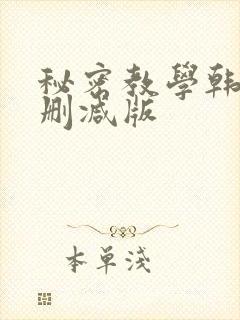 秘密教學韩
删减版
本单浅